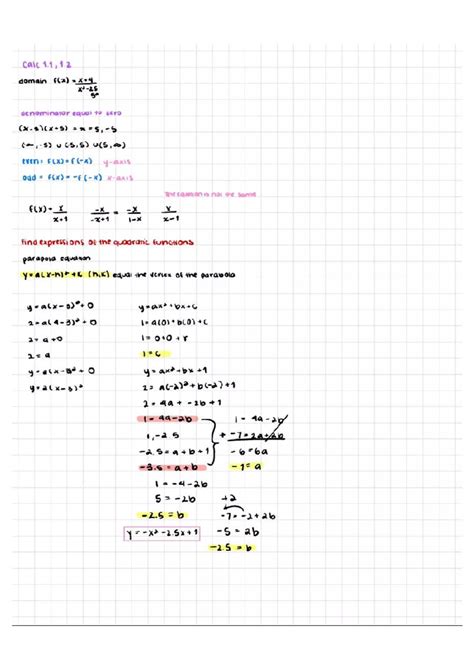 Calc 1.1, 1.2
domain f(x) = x+4 / x²-25
5²
denominator equal to zero
(x-5)(x+5) = x = 5, -5
(∞, -5) ∪ (5, 5) ∪ (5, ∞)
even = f(x) = f(-x) y-axis
odd = f(x) = -f(-x) x-axis
The equation is not the same
f(x) = x / x+1 -x / -x+1 = -x / 1-x = x / x-1
Find expressions of the quadratic functions
parabola equation
y = a(x-h)² + k (h,k) equal the vertex of the parabola
y = a(x-3)² + 0
2 = a(4-3)² + 0
2 = a + 0
2 = a
y = a(x-3)² + 0
y = 2(x-3)²
y = ax² + bx + c
1 = a(0) + b(0) + c
1 = 0 + 0 + c
1 = c
y = ax² + bx + 1
2 = a(-2)² + b(-2) + 1
2 = 4a + -2b + 1
1 = 4a - 2b
1, -2.5
-2.5 = a + b + 1
-3.5 = a + b
1 = 4a - 2b
+ -7 = 2a + 2b
-6 = 6a
-1 = a
1 = -4 - 2b
5 = -2b
-2.5 = b
y = -x² - 2.5x + 1
+2
-7 = -2 + 2b
-5 = 2b
-2.5 = b